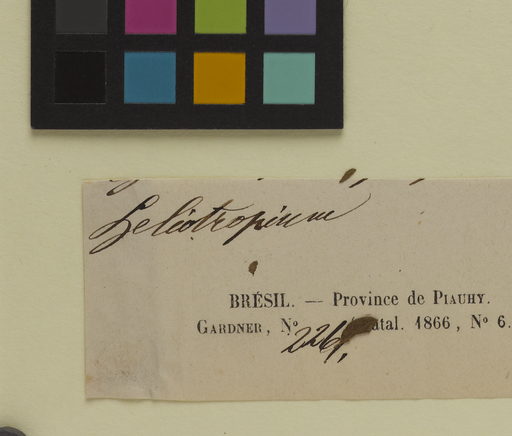 Heliotropium
BRÉSIL. — Province de PIAUHY.
GARDNER, No 2261. Catal. 1866, No 6.